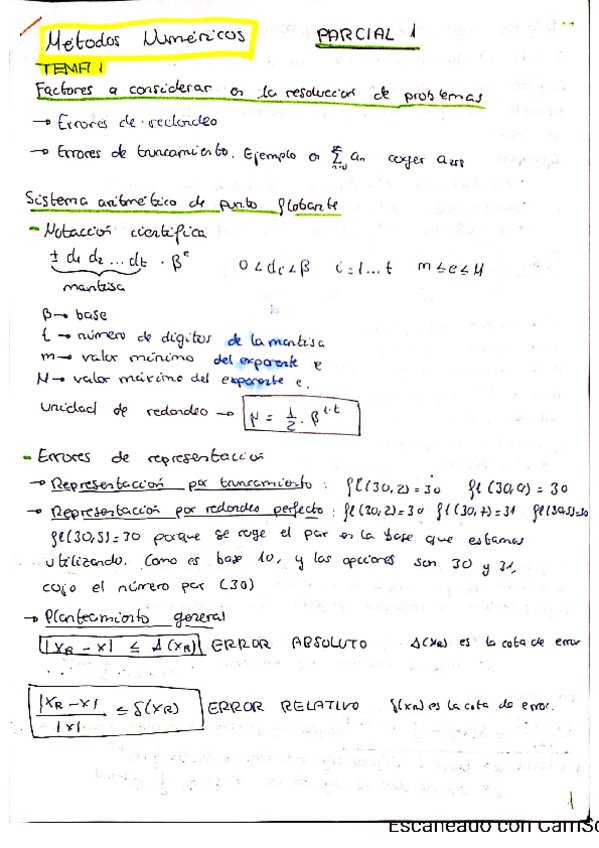 Métodos Numéricos PARCIAL 1
TEMA 1
Factores a considerar en la resolución de problemas
→ Errores de redondeo
→ Errores de truncamiento. Ejemplo en ∑ an coger
Sistema aritmético de punto flotante
- Notación científica
± d1 d2 ... dt · β^e 0 < di < β i = 1... t m ≤ e ≤ M
mantisa
β → base
t → número de dígitos de la mantisa
m → valor mínimo del exponente e
M → valor máximo del exponente e.
unidad de redondeo → μ = 1/2 · β^1-t
- Errores de representación
→ Representación por truncamiento: fl(30,2) = 30 fl(30,9) = 30
→ Representación por redondeo perfecto: fl(30,2) = 30 fl(30,7) = 31 fl(30,5) = 30
fl(30,5) = 30 porque se coge el par en la base que estamos
utilizando. Como es base 10, y las opciones son 30 y 31,
cojo el número par (30)
→ Planteamiento general
|XR - X| ≤ Δ(XR) ERROR ABSOLUTO Δ(XR) es la cota de error
|XR - X| / |X| ≤ δ(XR) ERROR RELATIVO δ(XR) es la cota de error.
1
Escaneado con CamSc